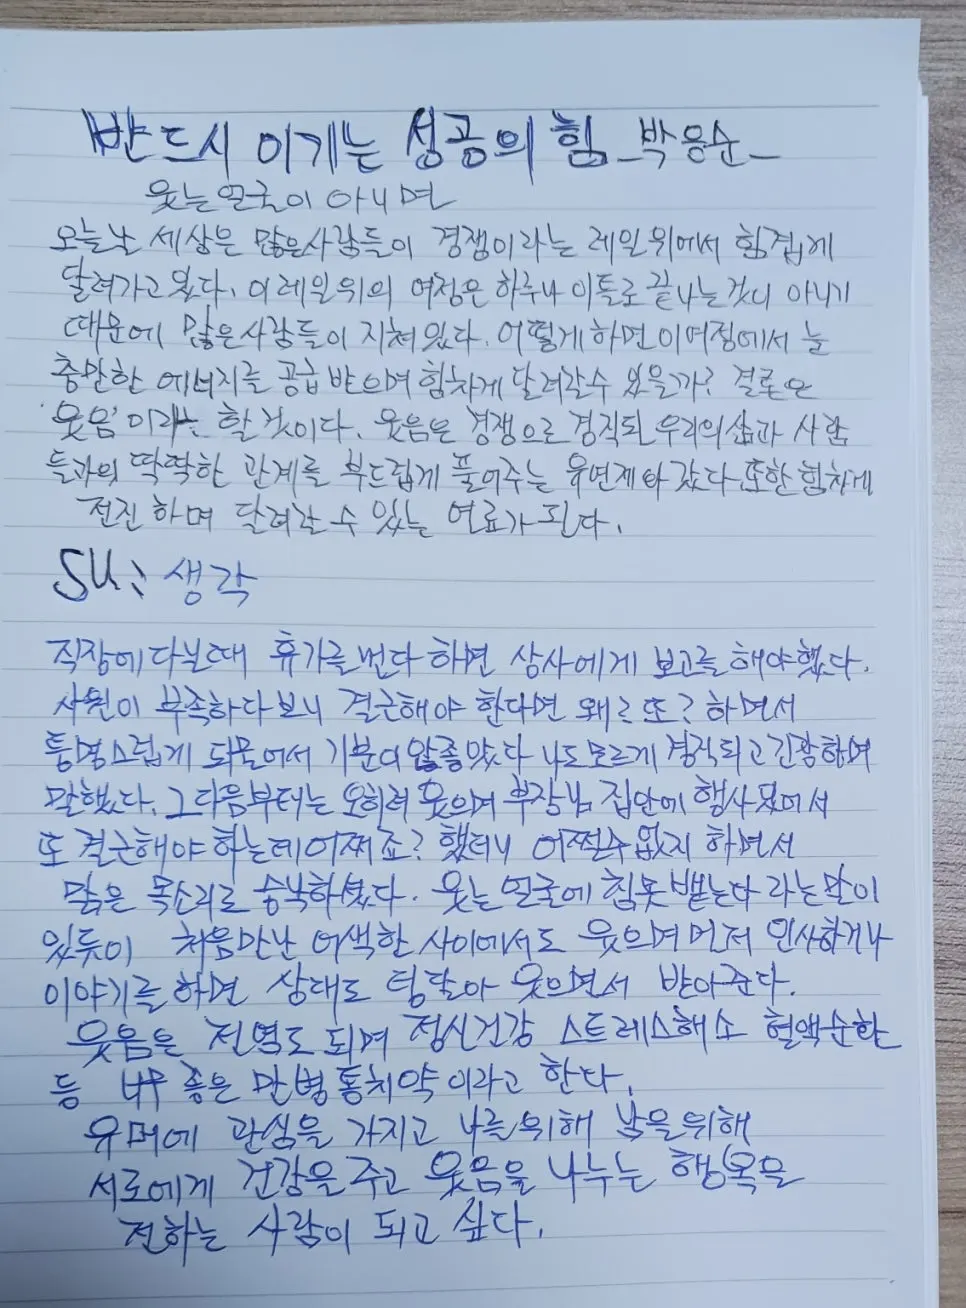 반드시 이기는 성공의 힘 _박응순_
웃는 얼굴이 아니면
오늘날 세상은 많은사람들이 경쟁이라는 레일위에서 힘겹게
달려가고있다. 이레일위의 여정은 하루나 이틀로 끝나는것이 아니기
때문에 많은사람들이 지쳐있다. 어떻게하면 이여정에서 늘
충만한 에너지를 공급 받으며 힘차게 달려갈수 있을까? 결론은
'웃음' 이라는 할것이다. 웃음은 경쟁으로 경직된 우리의삶과 사람
들과의 딱딱한 관계를 부드럽게 풀어주는 유연제와 같다 또한 힘차게
전진하며 달려갈 수 있는 연료가 된다.
SU: 생각
직장에 다닐때 휴가를 번다 하면 상사에게 보고를 해야했다.
사원이 부족하다보니 결근해야 한다면 왜? 또? 하면서
퉁명스럽게 되물어서 기분이 않좋았다 나도모르게 경직되고 긴장하며
말했다. 그다음부터는 오히려 웃으며 부장님 집안에 행사있어서
또 결근해야 하는데 어쩌죠? 했더니 어쩔수없지 하면서
맑은 목소리로 승낙하셨다. 웃는 얼굴에 침못 뱉는다 라는말이
있듯이 처음만난 어색한 사이에서도 웃으며 먼저 인사하거나
이야기를 하면 상대도 덩달아 웃으면서 받아준다.
웃음은 전염도 되며 정신건강 스트레스해소 혈액순환
등 너무 좋은 만병통치약이라고 한다.
유머에 관심을 가지고 나를위해 남을위해
서로에게 건강을주고 웃음을 나누는 행복을
전하는 사람이 되고 싶다.